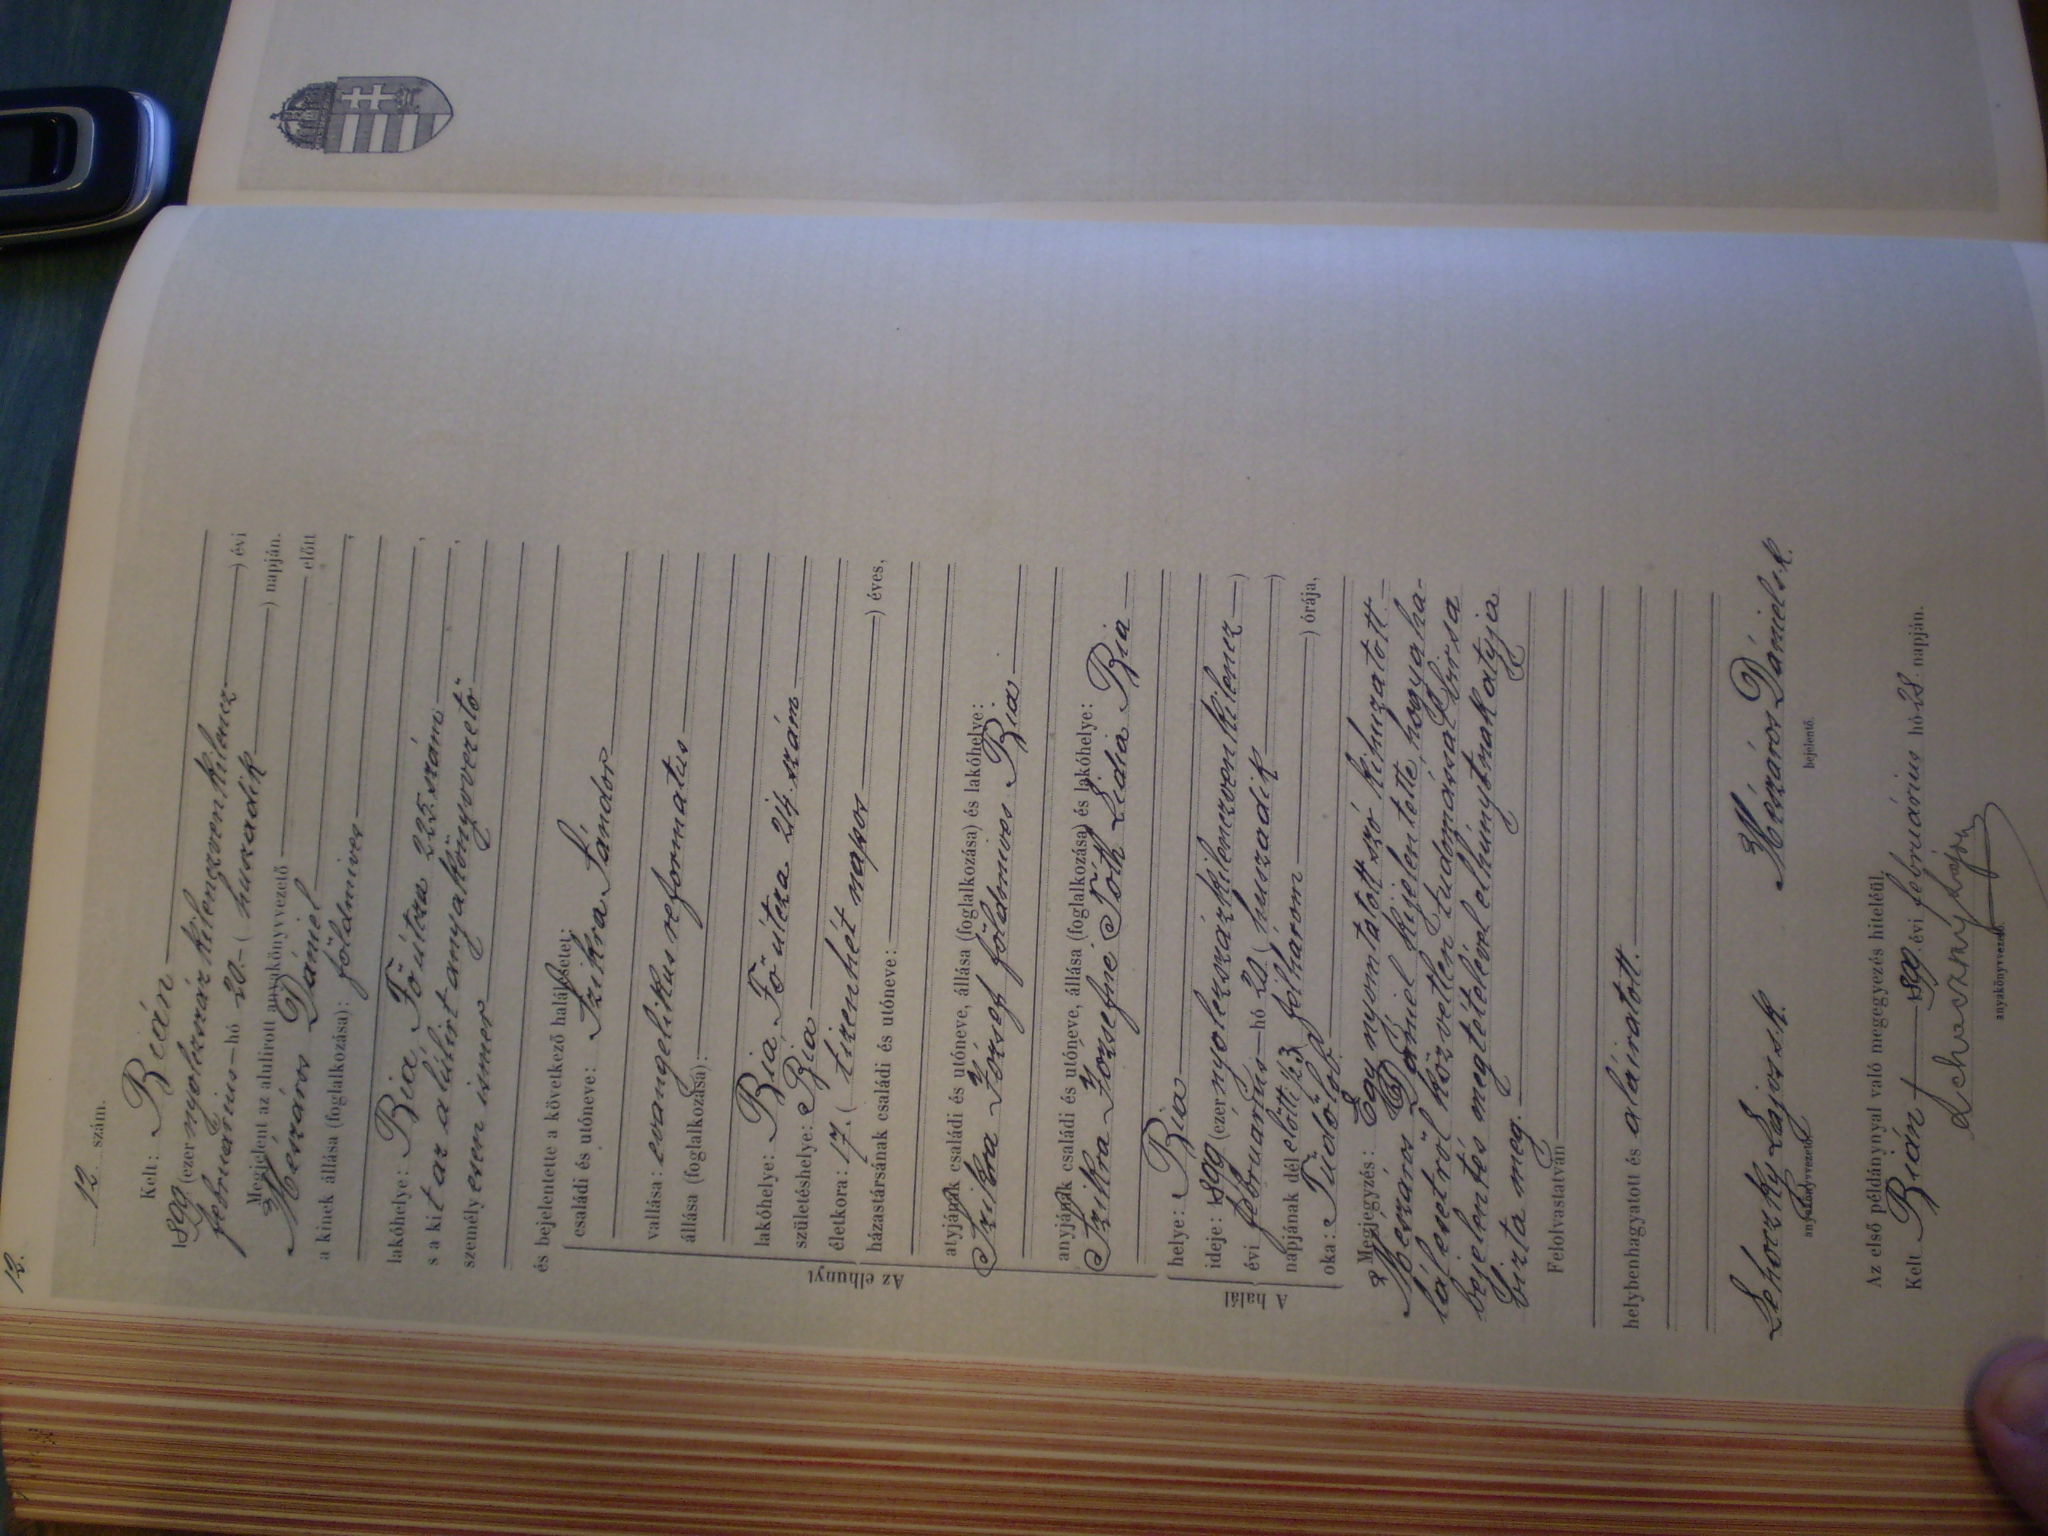 12.
12 szám.
Kelt: Bián
1899 (ezer nyolczszáz kilenczvenkilencz) évi
február hó 20.-(huszadik) napján.
Megjelent az alulirott anyakönyvvezető előtt
Mészáros Dániel
a kinek állása (foglalkozása): földmives,
lakóhelye: Bia Fő útcza 225. szám,
s a kit az alúlírt anyakönyvvezető,
személyesen ismer
és bejelentette a következő halálesetet:
Az elhunyt
családi és utóneve: Szikra Sándor
vallása: evangelikus reformatus
állása (foglalkozása):
lakóhelye: Bia Fő útcza 214. szám
születéshelye: Bia
életkora: 17. (tizenhét napos) éves,
házastársának családi és utóneve:
atyjának családi és utóneve, állása (foglalkozása) és lakóhelye:
Szikra József földmives Bia
anyjának családi és utóneve, állása (foglalkozása) és lakóhelye:
Szikra Józsefné Tóth Lidia Bia
A halál
helye: Bia
ideje: 1899 (ezer nyolczszázkilenczvenkilencz)
évi február hó 20 (huszadik)
napjának dél előtti ½3 (félhárom) órája,
oka: Tüdőlob
Megjegyzés: Egy nyomtatott szó kihúzatott.
Mészáros Dániel kijelentette, hogy a ha-
lálesetről közvetlen tudomással bir s a
bejelentés megtételével elhúnytnak atyja
bizta meg.
Felolvastatván
helybenhagyatott és aláiratott.
Lehoczky Lajos s.k.
anyakönyvvezető.
Mészáros Dániel s.k.
bejelentő.
Az első példánynyal való megegyezés hiteléül,
Kelt Bián 1899. évi február hó 28. napján.
Lehoczky Lajos
anyakönyvvezető.